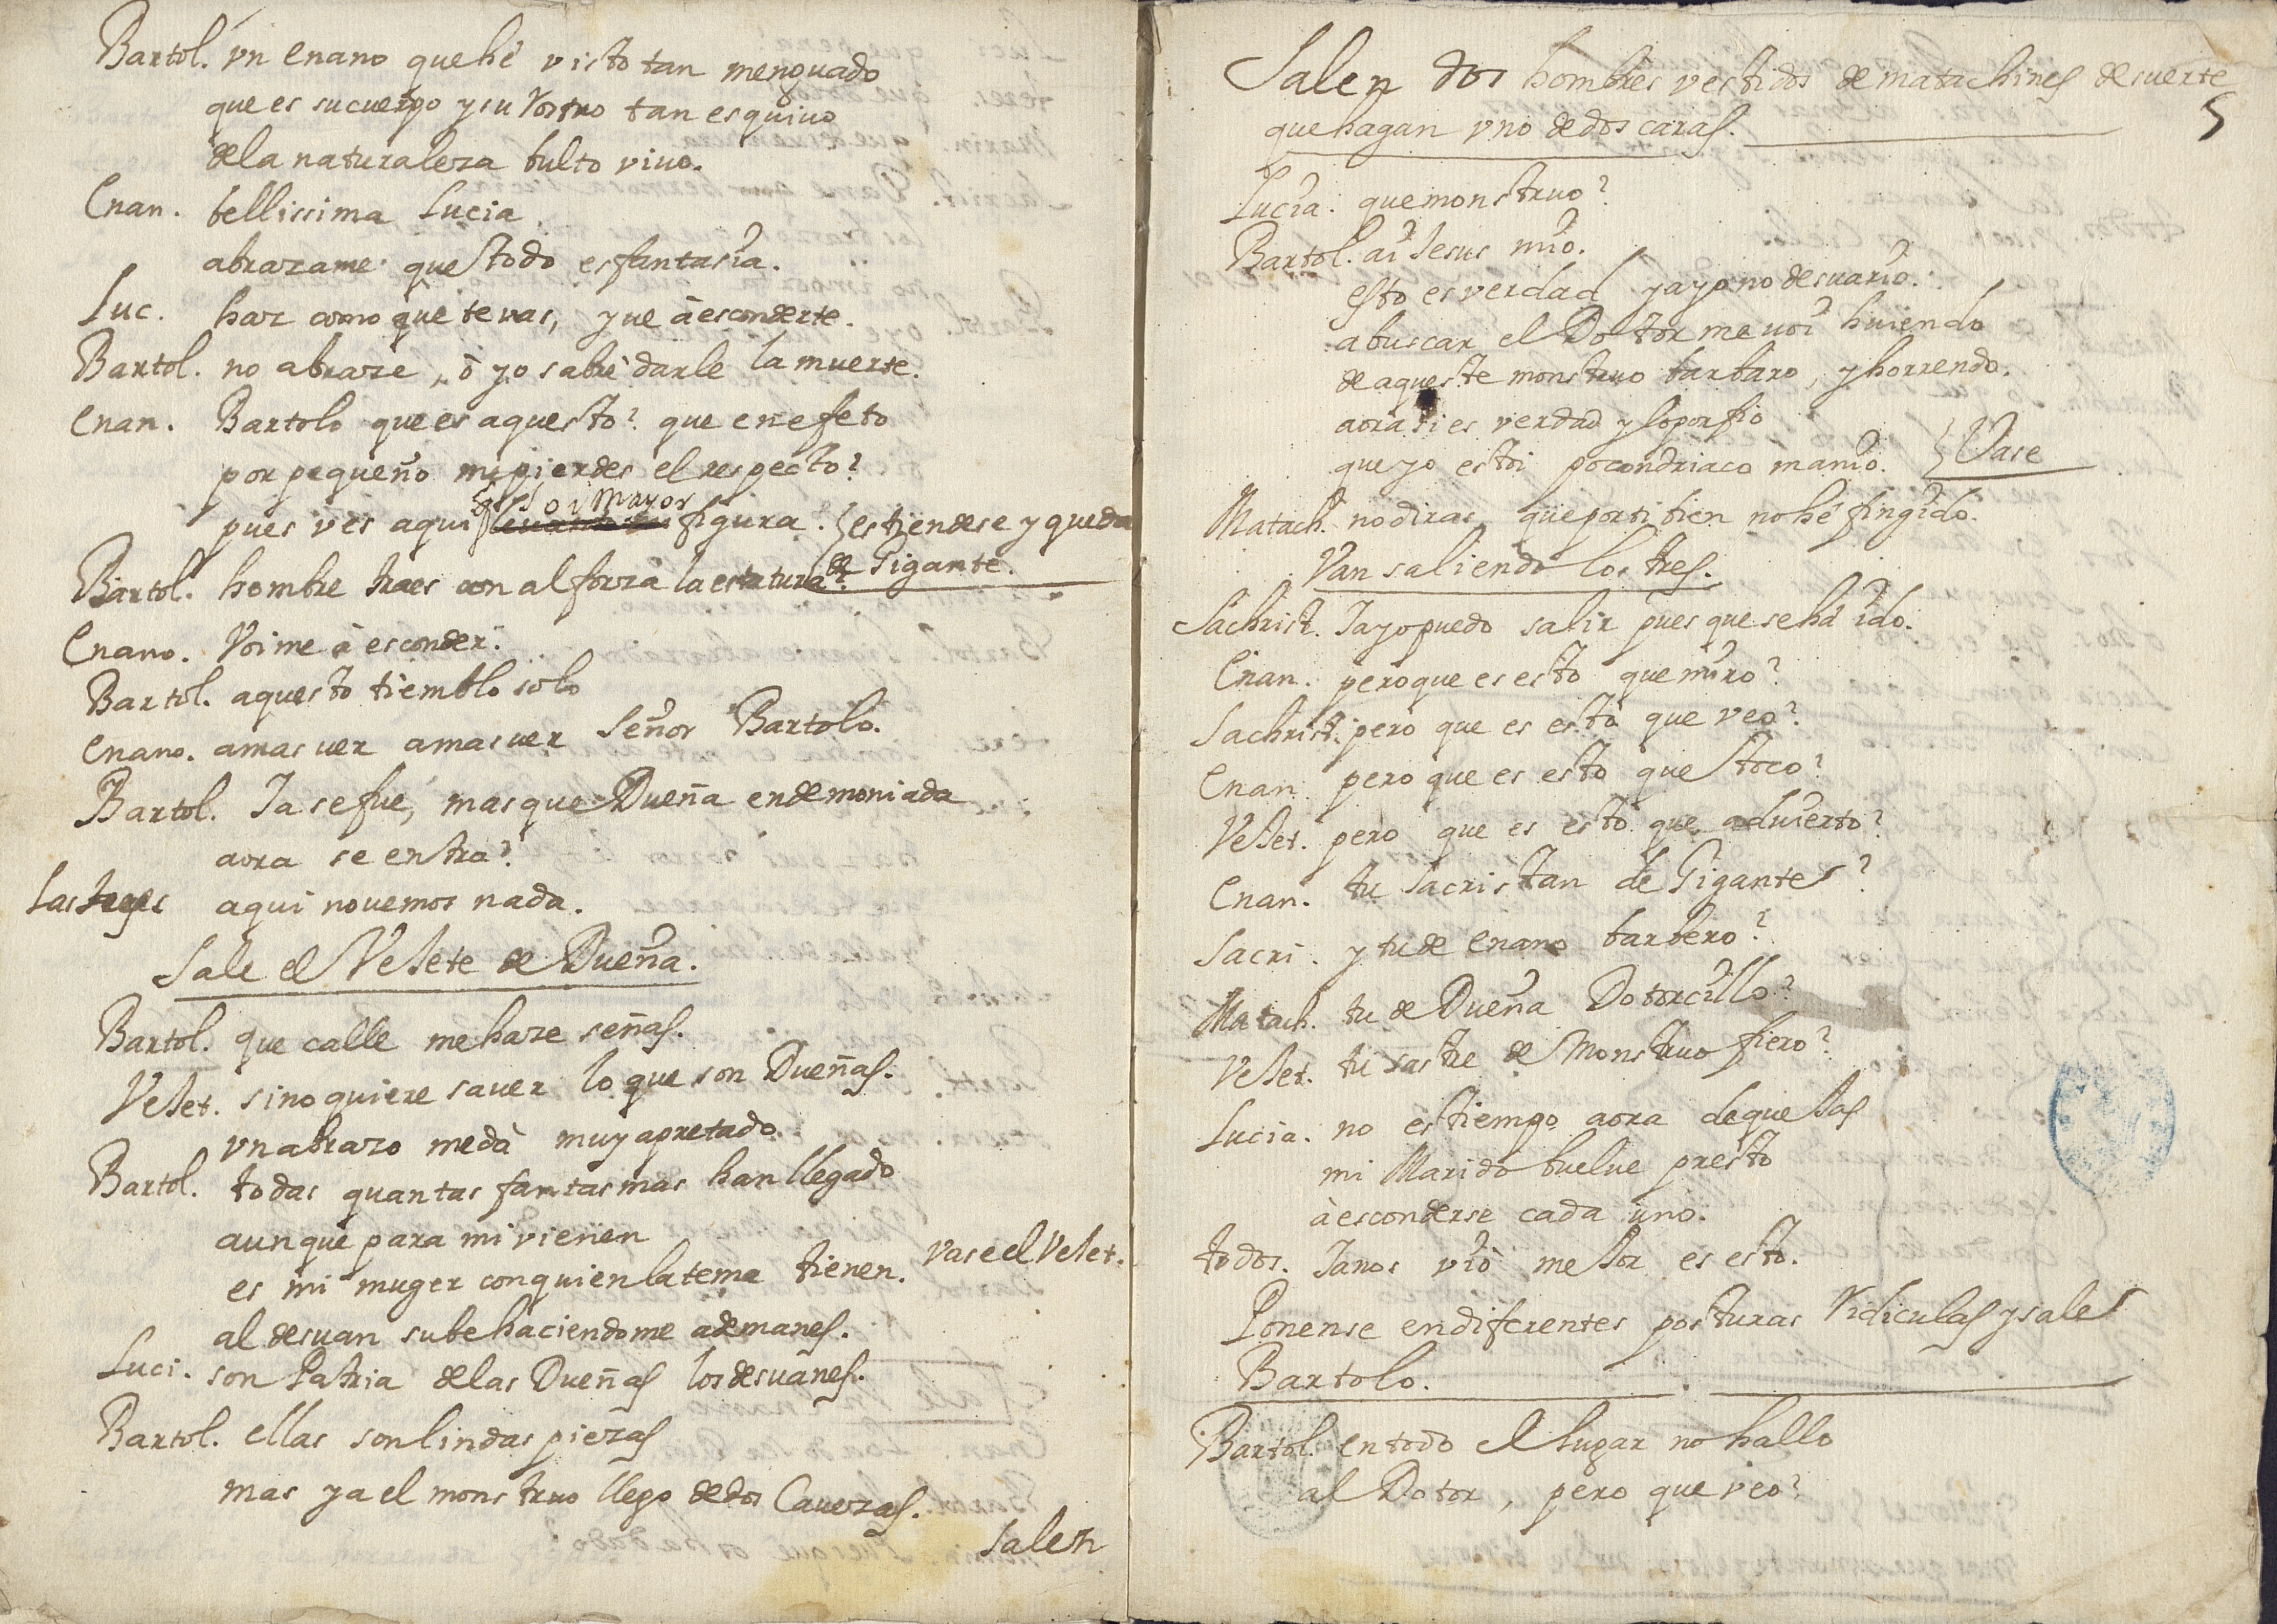 Bartol. vn enano que hé visto tan menguado
que es su cuerpo y su rostro tan esquiuo
de la naturaleza bulto viuo.
Enan. bellissima Lucia
abrazame que todo es fantasia.
Luc. haz como que te vas, y ue à esconderte.
Bartol. no abraze, ò yo sabrè darle la muerte.
Enan. Bartolo que es aquesto? que en efeto
por pequeño me pierdes el respecto?
soi mayor
pues ves aqui figura. estiendese y queda
de Gigante.
Bartol. hombre traes con alforza la estatura?
Enano. Voime à esconder.
Bartol. aquesto tiemblo solo
Enano. a mas uer a mas uer Señor Bartolo.
Bartol. Ia se fue, mas que Dueña endemoniada
aora se entra?
Las tres aqui no uemos nada.
Sale el Vejete de Dueña.
Bartol. que calle me haze señas.
Vejet. si no quiere sauer lo que son Dueñas.
vn abrazo me dà muy apretado.
Bartol. todas quantas fantasmas han llegado
aunque para mi vienen
es mi muger con quien la tema tienen. vase el Vejet.
al desuan sube haciendome ademanes.
Luci. son Patria de las Dueñas los desuanes.
Bartol. ellas son lindas piezas
mas ya el monstruo llego de dos Cauezas.
Salen
Salen dos hombres vestidos de matachines de suerte
5
que hagan vno de dos caras.
Lucia. que monstruo?
Bartol. ai Jesus mio.
esto es verdad ya yo no desuario.
a buscar el Dotor me uoi huiendo
de aqueste monstruo barbaro, y horrendo.
aora si es verdad y lo porfio
que yo estoi pocondriaco manio. Vase
Matach. no diras que por ti bien no hé fingido.
Van saliendo los tres.
Sachrist. Ia yo puedo salir pues que se há ido.
Enan. pero que es esto que miro?
Sachrist. pero que es esto que veo?
Enan. pero que es esto que toco?
Vejet. pero que es esto que aduierto?
Enan. tu Sacristan de Gigante?
Sacri. y tu de enano barbero?
Matach. tu de Dueña Dotorcillo?
Vejet. tu sastre de Monstruo fiero?
Lucia. no es tiempo aora de quejas
mi Marido buelue presto
à esconderse cada uno.
todos. Ia nos vio mejor es esto.
Ponense en diferentes posturas ridiculas y sale
Bartolo.
Bartol. en todo el lugar no hallo
al Dotor, pero que veo?